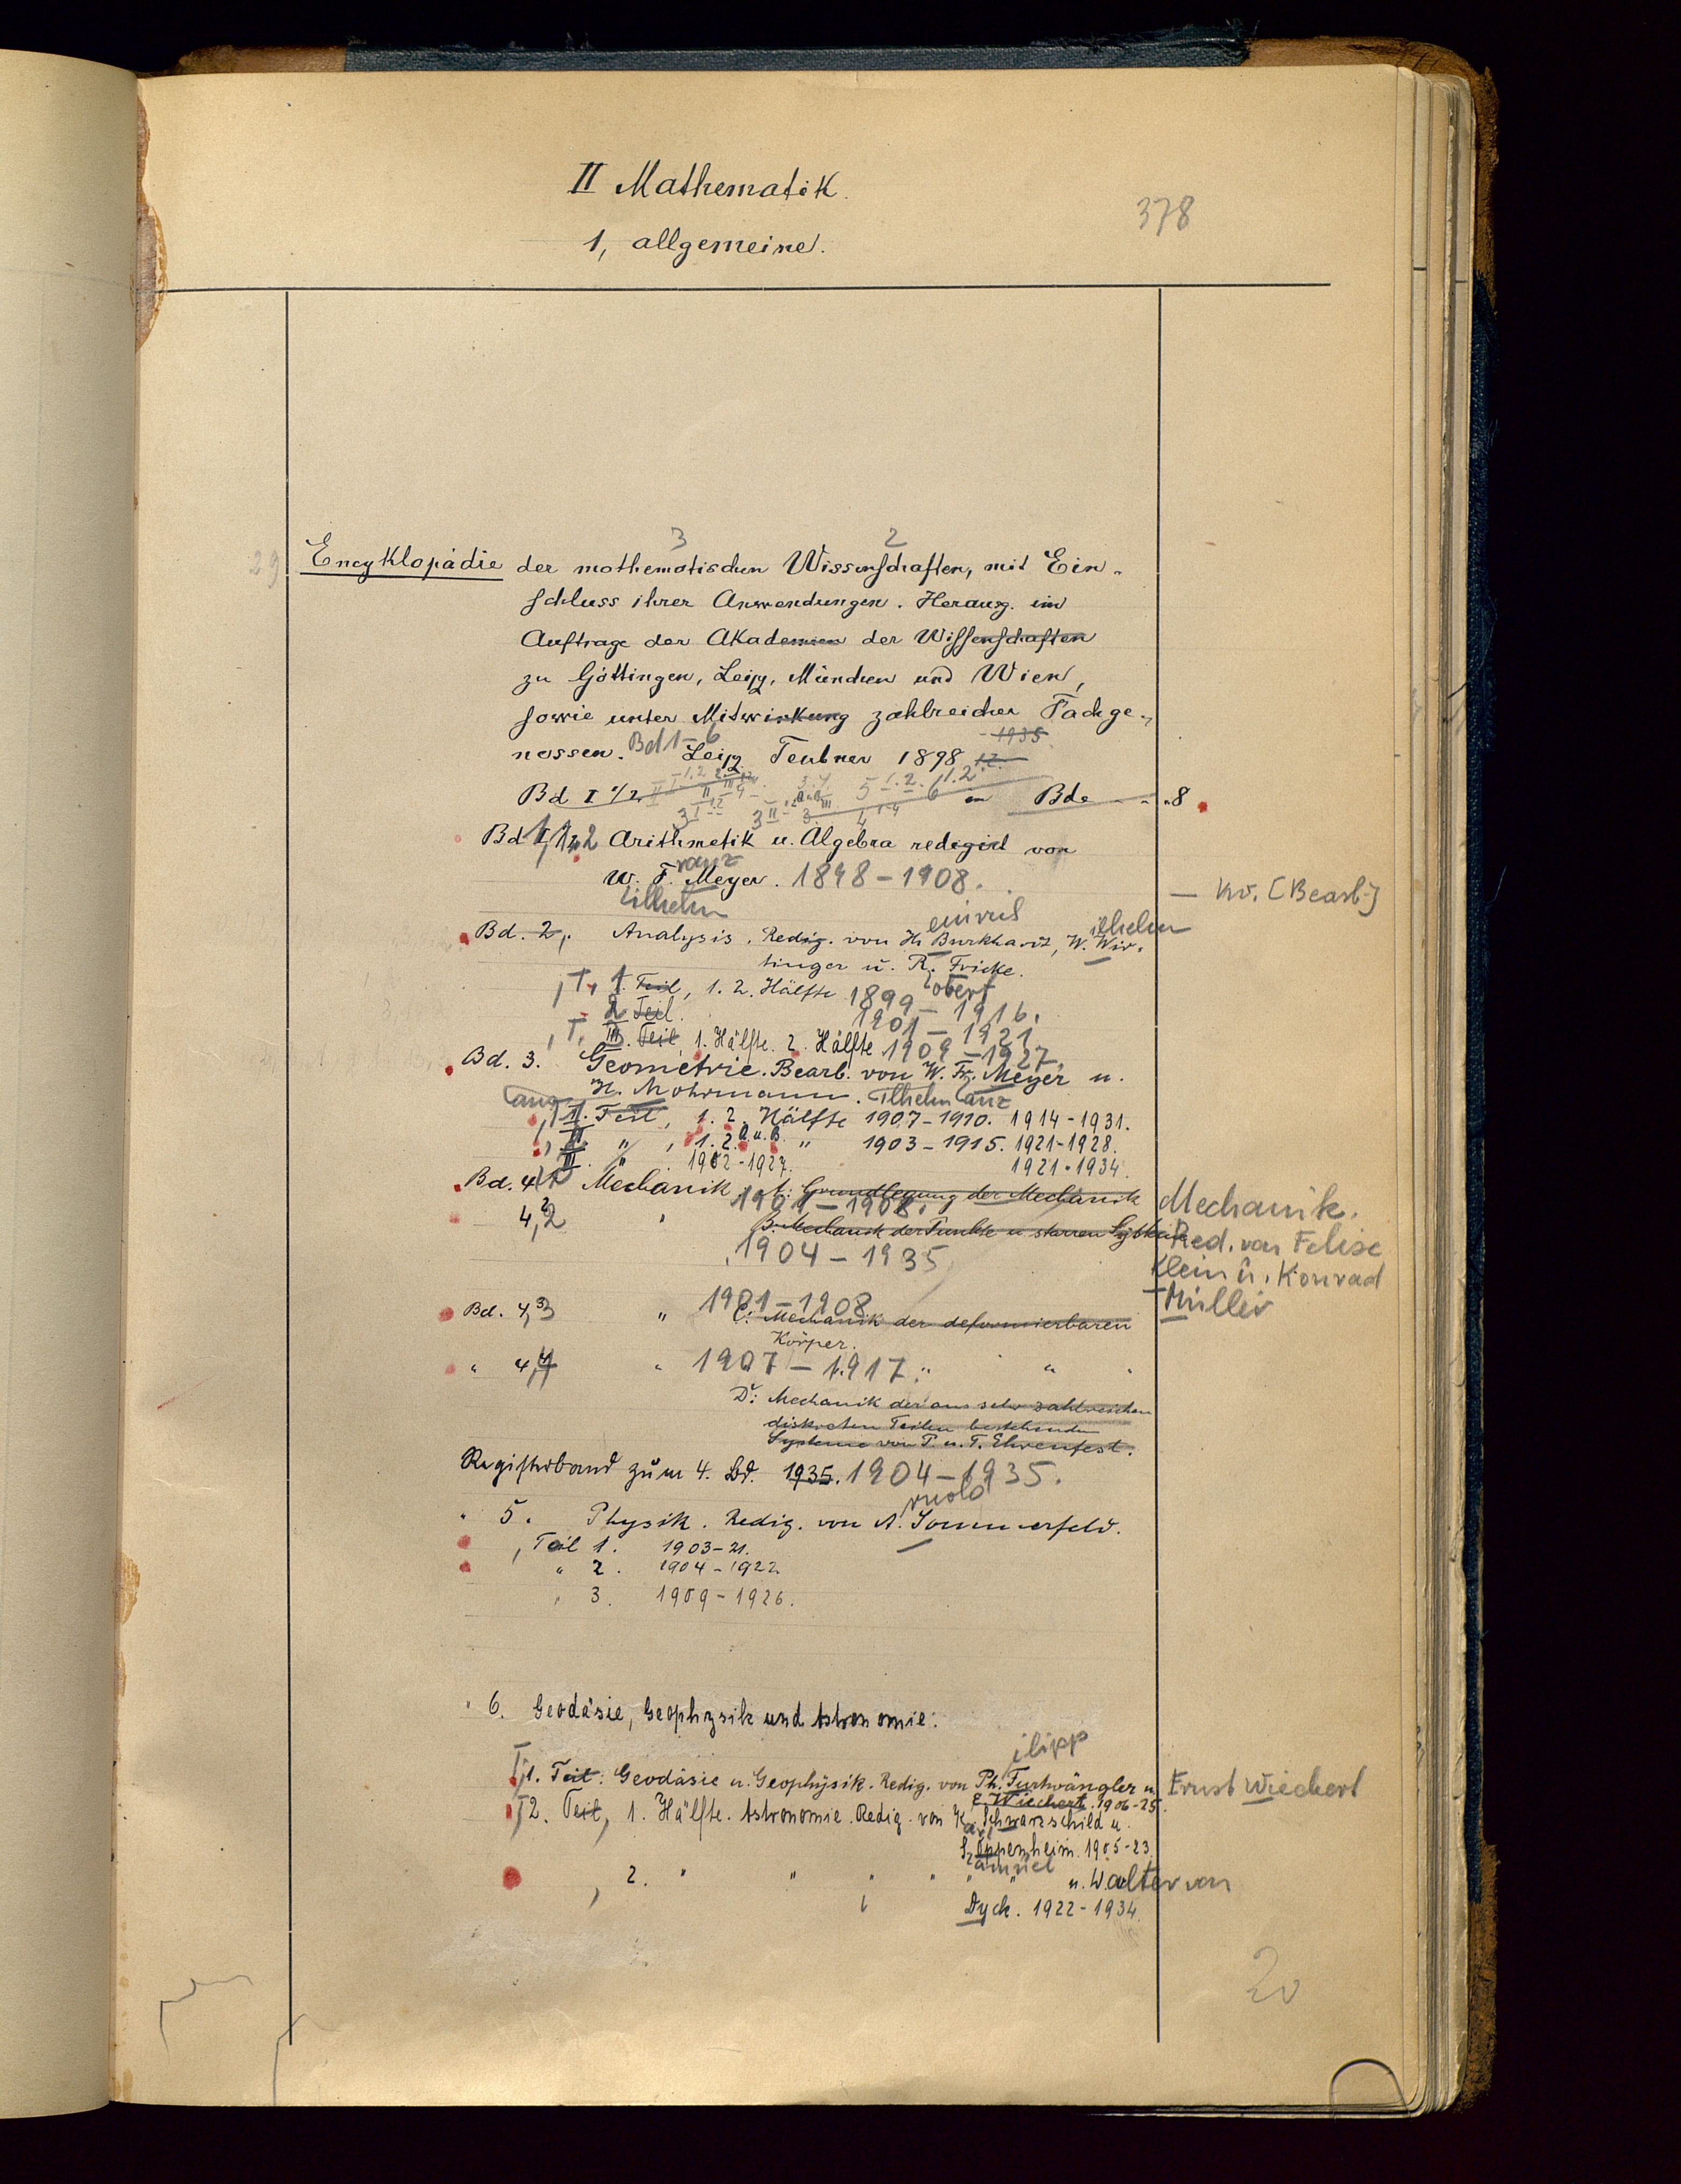 II Mathematik.
378
1, allgemeine.
3 2
29 Encyklopädie der mathematischen Wissenschaften, mit Ein-
schluss ihrer Anwendungen. Herausg. im
Auftrage der Akademien der Wissenschaften
zu Göttingen, Leipz, München und Wien,
sowie unter Mitwirkung zahlreicher Fachge-
- 1935
nossen. Bd 1-6 Leipz. Teubner 1898
Bd I 1/2 in Bde 8
Bd 1, 1 u 2 Arithmetik u. Algebra redigirt von
ranz
W. F. Meyer. 1898-1908.
ilhelm
— Kv. [Bearb.]
einrich ilhelm
Bd. 2, Analysis. Redig. von H. Burkhardt, W. Wir-
tinger u. R. Fricke.
obert
, T. 1. Teil, 1. 2. Hälfte 1899-1916.
2 Teil. 1901-1921
, T. III. Teil, 1. Hälfte. 2. Hälfte 1909-1927.
Bd. 3. Geometrie. Bearb. von W. Fr. Meyer u.
H. Mohrmann. ilhelm anz
, 1. Teil, 1. 2. Hälfte 1907-1910. 1914-1931.
, II. " , 1. 2. A u. B. " 1903-1915. 1921-1928.
III. " 1902-1927. 1921-1934.
Bd. 4,1 Mechanik. A: Grundlegung der Mechanik
1901-1908.
4,2 B. Mechanik der Punkte u starren Systeme
1904-1935
Mechanik.
Red. von Felix
Klein u. Konrad
Müller
1901-1908
Bd. 4,3 " C: Mechanik der deformierbaren
Körper.
" 4,4 " 1907-1917. " "
D: Mechanik der aus sehr zahlreichen
diskreten Teilen bestehenden
Systeme von P. u. T. Ehrenfest.
Registerband zum 4. Bd. 1935. 1904-1935.
rnold
" 5. Physik. Redig. von A. Sommerfeld.
, Teil 1. 1903-21.
" 2. 1904-1922
" 3. 1909-1926.
" 6. Geodäsie, Geophysik und Astronomie.
ilipp
T, 1. Teil: Geodäsie u. Geophysik. Redig. von Ph. Furtwängler u.
E. Wiechert. 1906-25.
Ernst Wiechert
T 2. Teil, 1. Hälfte. Astronomie. Redig. von K. Schwarzschild u.
arl
S. Oppenheim. 1905-23.
amuel
, 2. " " " " " " u. Walter von
Dyck. 1922-1934.
20